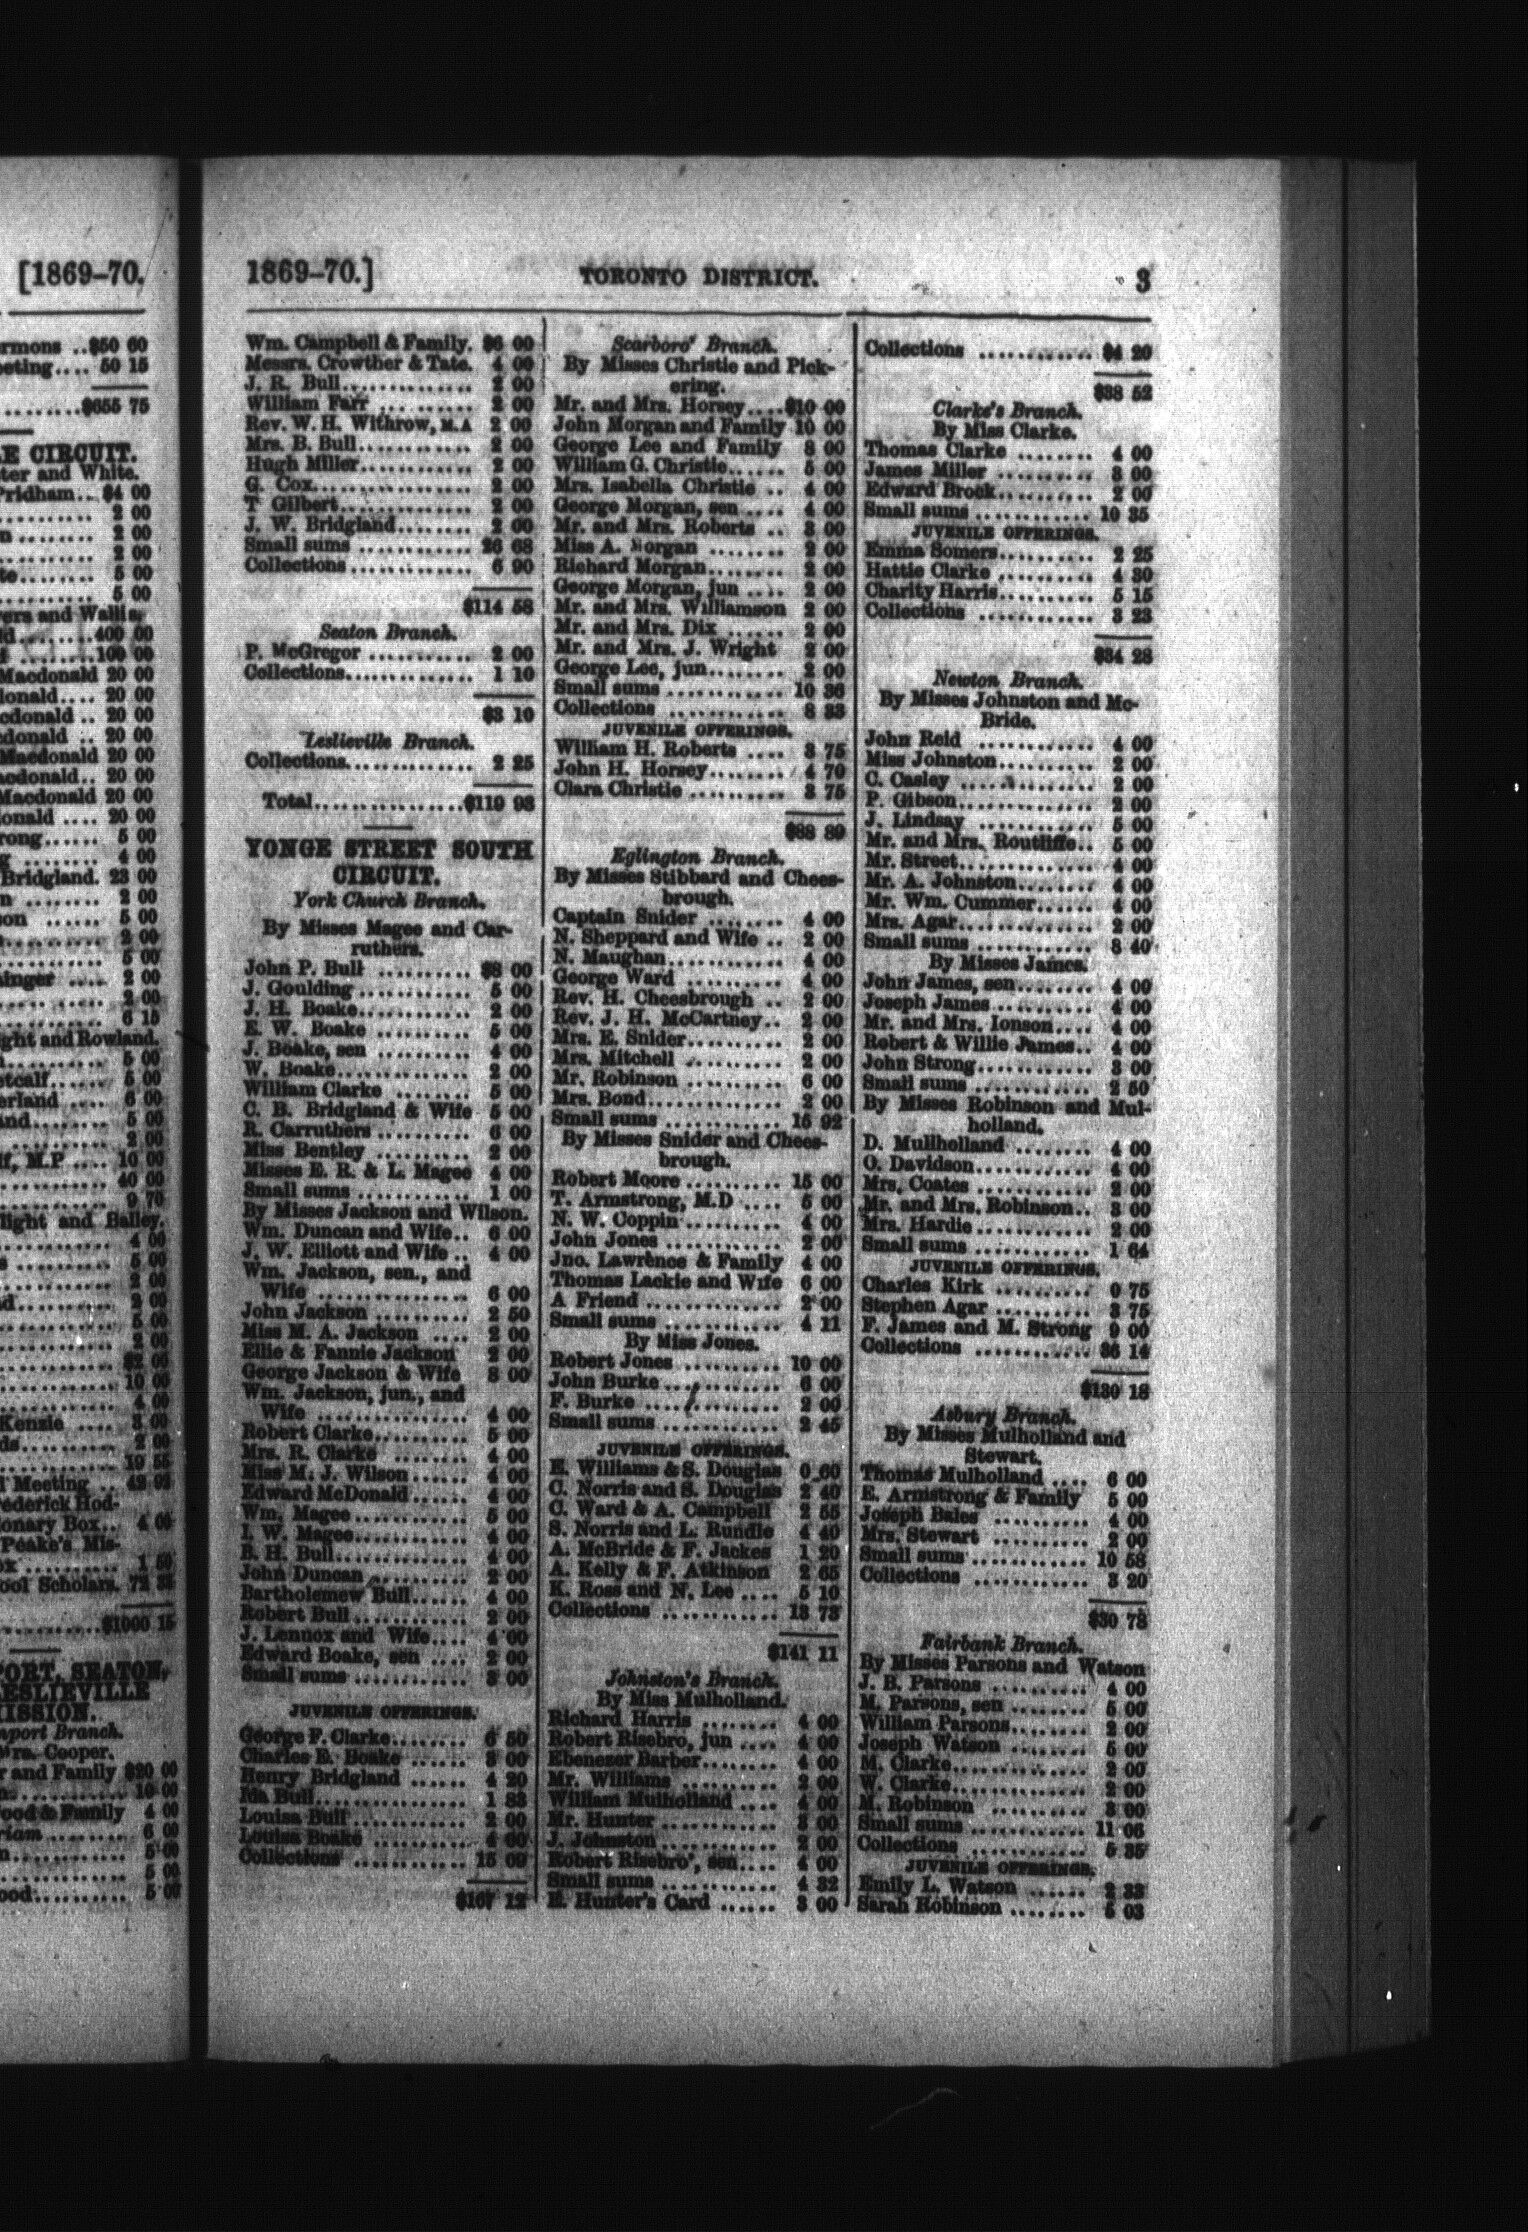 [1869–70.
ermons ..$50 60
eeting.... 50 15
........$655 75
LE CIRCUIT.
ter and White.
Pridham.. $4 00
........ 2 00
n ........ 2 00
........ 2 00
te........ 5 00
........ 5 00
ers and Wallis.
ld ...... 400 00
........100 00
Macdonald 20 00
donald.... 20 00
cdonald .. 20 00
cdonald .. 20 00
Macdonald 20 00
acdonald.. 20 00
Macdonald 20 00
donald .... 20 00
rong...... 5 00
g ........ 4 00
Bridgland. 23 00
n ........ 2 00
son ...... 5 00
........ 2 00
........ 5 00
inger .... 2 00
........ 2 00
........ 6 15
ght and Rowland.
........ 5 00
etcalf...... 5 00
erland .... 6 00
and........ 5 00
........ 2 00
lf, M.P .... 10 00
........ 40 00
........ 9 70
light and Bailey.
........ 4 00
s ........ 5 00
........ 2 00
d........ 2 00
........ 5 00
........ 2 00
........ 10 00
........ 4 00
Kenzie .... 3 00
ds........ 2 00
........ 19 55
l Meeting .. 42 03
rederick Hod-
ionary Box.. 4 00
Peake's Mis-
ox ........ 1 50
ool Scholars.
........$1000 15
PORT, SEATON,
LESLIEVILLE
MISSION.
port Branch.
Mrs. Cooper.
r and Family $20 00
........ 10 00
ood & Family 4 00
riam ........ 6 00
n........ 5 00
........ 5 00
ood........ 5 00
1869–70.] TORONTO DISTRICT. 3
Wm. Campbell & Family. $6 00
Messrs. Crowther & Tate. 4 00
J. R. Bull.............. 2 00
William Farr .......... 2 00
Rev. W. H. Withrow, M.A 2 00
Mrs. B. Bull............ 2 00
Hugh Miller............ 2 00
G. Cox................ 2 00
T Gilbert.............. 2 00
J. W. Bridgland........ 2 00
Small sums ............ 26 68
Collections ............ 6 90
$114 58
Seaton Branch.
P. McGregor .......... 2 00
Collections.............. 1 10
$3 10
Leslieville Branch.
Collections.............. 2 25
Total................$119 93
YONGE STREET SOUTH
CIRCUIT.
York Church Branch.
By Misses Magee and Car-
ruthers.
John P. Bull .......... $8 00
J. Goulding ............ 5 00
J. H. Boake............ 2 00
E. W. Boake .......... 5 00
J. Boake, sen .......... 4 00
W. Boake.............. 2 00
William Clarke ........ 5 00
C. B. Bridgland & Wife 5 00
R. Carruthers .......... 6 00
Miss Bentley .......... 2 00
Misses E. R. & L. Magee 4 00
Small sums ............ 1 00
By Misses Jackson and Wilson.
Wm. Duncan and Wife.. 6 00
J. W. Elliott and Wife .. 4 00
Wm. Jackson, sen., and
Wife ................ 6 00
John Jackson .......... 2 50
Miss M. A. Jackson .... 2 00
Ellie & Fannie Jackson 2 00
George Jackson & Wife 8 00
Wm. Jackson, jun., and
Wife ................ 4 00
Robert Clarke.......... 5 00
Mrs. R. Clarke ........ 4 00
Miss M. J. Wilson ...... 4 00
Edward McDonald...... 4 00
Wm. Magee ............ 5 00
I. W. Magee............ 4 00
B. H. Bull.............. 4 00
John Duncan .......... 2 00
Bartholemew Bull...... 4 00
Robert Bull ............ 2 00
J. Lennox and Wife.... 4 00
Edward Boake, sen .... 2 00
Small sums ............ 3 00
JUVENILE OFFERINGS.
George F. Clarke........ 6 50
Charles E. Boake ...... 3 00
Henry Bridgland ...... 4 20
Ida Bull................ 1 83
Louisa Bull ............ 2 00
Louisa Boake .......... 4 00
Collections ............ 15 09
$167 12
Scarboro' Branch.
By Misses Christie and Pick-
ering.
Mr. and Mrs. Horsey....$10 00
John Morgan and Family 10 00
George Lee and Family 8 00
William G. Christie...... 5 00
Mrs. Isabella Christie .. 4 00
George Morgan, sen .... 4 00
Mr. and Mrs. Roberts .. 3 00
Miss A. Morgan ........ 2 00
Richard Morgan........ 2 00
George Morgan, jun .... 2 00
Mr. and Mrs. Williamson 2 00
Mr. and Mrs. Dix ...... 2 00
Mr. and Mrs. J. Wright 2 00
George Lee, jun........ 2 00
Small sums ............ 10 36
Collections ............ 8 33
JUVENILE OFFERINGS.
William H. Roberts .... 3 75
John H. Horsey........ 4 70
Clara Christie .......... 3 75
$88 89
Eglington Branch.
By Misses Stibbard and Chees-
brough.
Captain Snider ........ 4 00
N. Sheppard and Wife .. 2 00
N. Maughan............ 4 00
George Ward .......... 4 00
Rev. H. Cheesbrough .. 2 00
Rev. J. H. McCartney.. 2 00
Mrs. E. Snider.......... 2 00
Mrs. Mitchell .......... 2 00
Mr. Robinson .......... 6 00
Mrs. Bond.............. 2 00
Small sums ............ 15 92
By Misses Snider and Chees-
brough.
Robert Moore .......... 15 00
T. Armstrong, M.D .... 5 00
N. W. Coppin .......... 4 00
John Jones ............ 2 00
Jno. Lawrence & Family 4 00
Thomas Lackie and Wife 6 00
A Friend .............. 2 00
Small sums ............ 4 11
By Miss Jones.
Robert Jones .......... 10 00
John Burke............ 6 00
F. Burke .............. 2 00
Small sums ............ 2 45
JUVENILE OFFERINGS.
E. Williams & S. Douglas 0 60
C. Norris and S. Douglas 2 40
C. Ward & A. Campbell 2 55
S. Norris and L. Rundle 4 40
A. McBride & F. Jackes 1 20
A. Kelly & F. Atkinson 2 65
K. Ross and N. Lee .... 5 10
Collections ............ 13 73
$141 11
Johnston's Branch.
By Miss Mulholland.
Richard Harris ........ 4 00
Robert Risebro, jun .... 4 00
Ebenezer Barber........ 4 00
Mr. Williams .......... 2 00
William Mulholland .... 4 00
Mr. Hunter ............ 3 00
J. Johnston ............ 2 00
Robert Risebro', sen.... 4 00
Small sums ............ 4 32
E. Hunter's Card ...... 3 00
Collections ............ $4 20
$38 52
Clarke's Branch.
By Miss Clarke.
Thomas Clarke ........ 4 00
James Miller .......... 3 00
Edward Brock.......... 2 00
Small sums ............ 10 35
JUVENILE OFFERINGS.
Emma Somers.......... 2 25
Hattie Clarke .......... 4 30
Charity Harris.......... 5 15
Collections ............ 3 23
$34 28
Newton Branch.
By Misses Johnston and Mc-
Bride.
John Reid ............ 4 00
Miss Johnston.......... 2 00
C. Casley .............. 2 00
P. Gibson.............. 2 00
J. Lindsay ............ 5 00
Mr. and Mrs. Routliffe.. 5 00
Mr. Street.............. 4 00
Mr. A. Johnston........ 4 00
Mr. Wm. Cummer...... 4 00
Mrs. Agar.............. 2 00
Small sums ............ 8 40
By Misses James.
John James, sen........ 4 00
Joseph James .......... 4 00
Mr. and Mrs. Ionson.... 4 00
Robert & Willie James.. 4 00
John Strong............ 3 00
Small sums ............ 2 50
By Misses Robinson and Mul-
holland.
D. Mullholland ........ 4 00
O. Davidson............ 4 00
Mrs. Coates ............ 2 00
Mr. and Mrs. Robinson.. 3 00
Mrs. Hardie ............ 2 00
Small sums ............ 1 64
JUVENILE OFFERINGS.
Charles Kirk .......... 0 75
Stephen Agar .......... 3 75
F. James and M. Strong 9 00
Collections ............ 36 14
$130 18
Asbury Branch.
By Misses Mulholland and
Stewart.
Thomas Mulholland .... 6 00
E. Armstrong & Family 5 00
Joseph Bales .......... 4 00
Mrs. Stewart .......... 2 00
Small sums ............ 10 58
Collections ............ 3 20
$30 78
Fairbank Branch.
By Misses Parsons and Watson
J. B. Parsons .......... 4 00
M. Parsons, sen ........ 5 00
William Parsons........ 2 00
Joseph Watson ........ 5 00
M. Clarke.............. 2 00
W. Clarke.............. 2 00
M. Robinson .......... 3 00
Small sums ............ 11 06
Collections ............ 5 35
JUVENILE OFFERINGS.
Emily L. Watson ...... 2 33
Sarah Robinson ........ 5 03